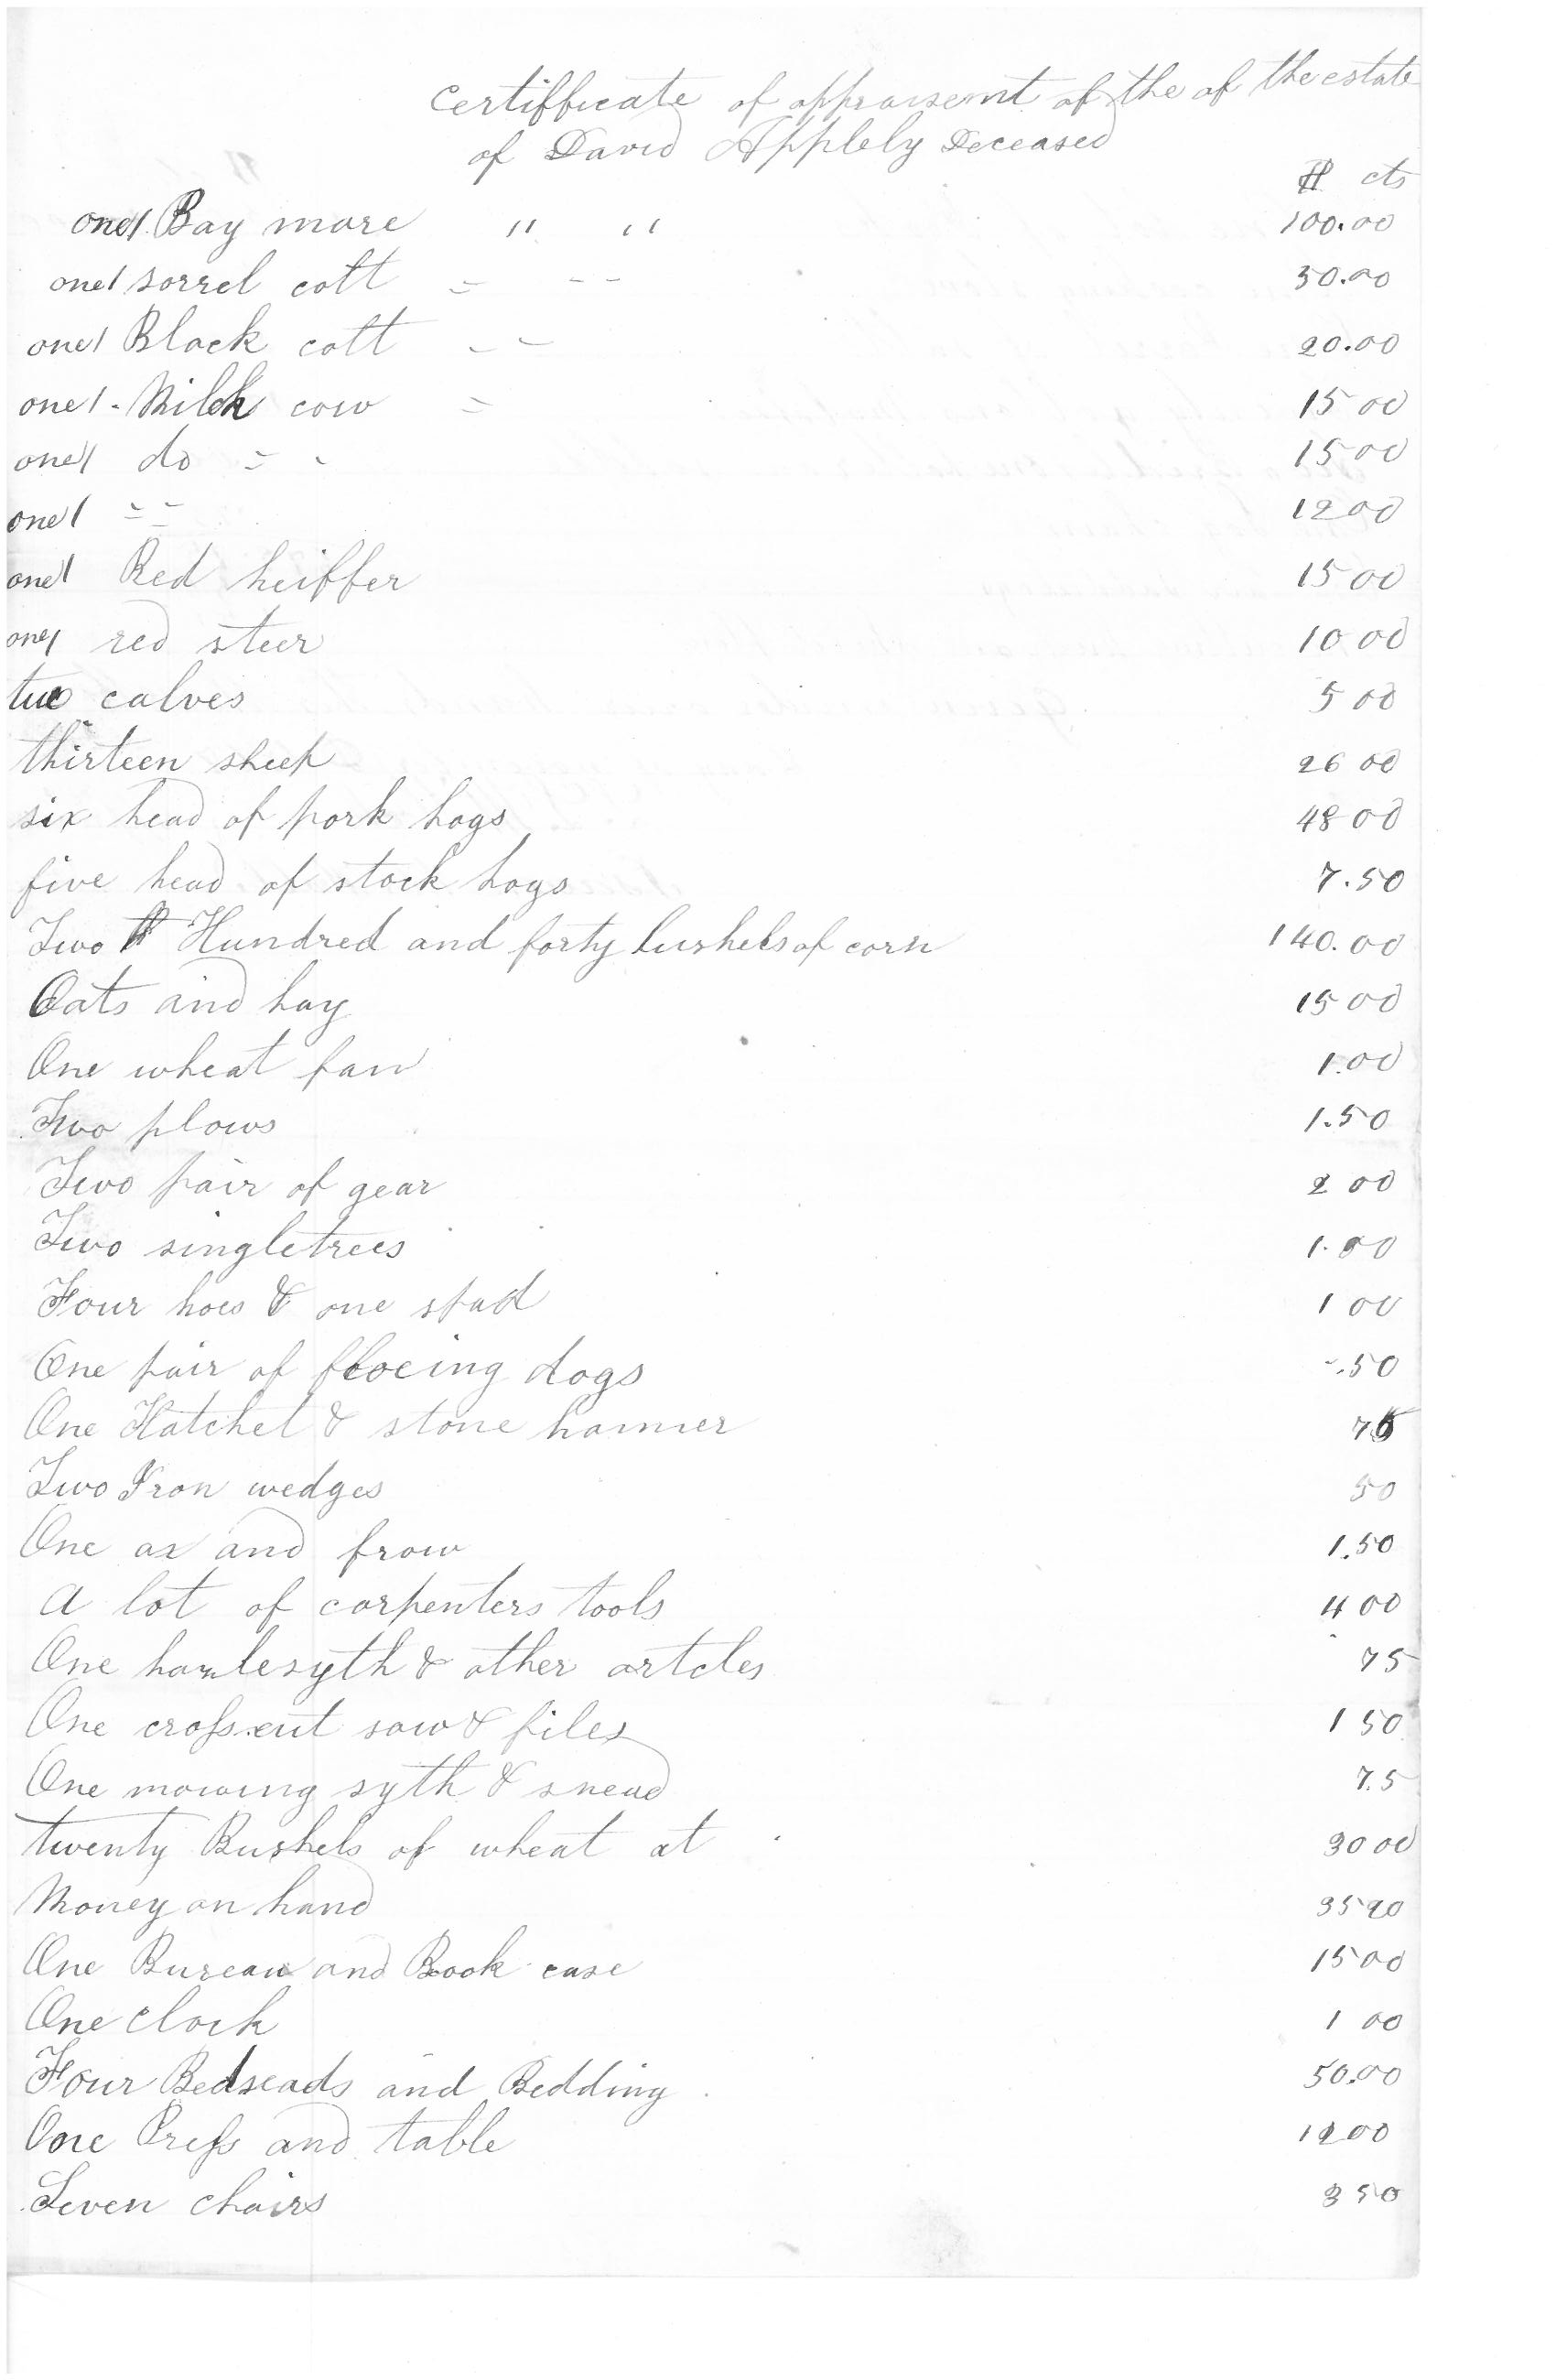 certifficate of appraisemt of the of the estate
of David Applely Deceased
$ cts
one 1 Bay mare " " 100.00
one 1 sorrel colt = -- 50.00
one 1 Black colt -- 20.00
one 1 Milch cow = 15 00
one 1 do = - 15 00
one 1 -- 12 00
one 1 Red heiffer 15 00
one 1 red steer 10 00
two calves 5 00
thirteen sheep 26 00
six head of pork hogs 48 00
five head of stock hogs 7.50
Two Hundred and forty bushels of corn 140.00
Oats and hay 15 00
One wheat fan 1.00
Two plows 1.50
Two pair of gear 2 00
Two singletrees 1.00
Four hoes & one spad 1 00
One pair of dogs -.50
One Hatchet & stone hammer 75
Two Iron wedges 50
One ax and frow 1.50
A lot of carpenters tools 4 00
One & other artcles 75
One cross cut saw & files 1 50
One mowing syth & snead 75
twenty Bushels of wheat at 30 00
Money on hand 35 20
One Bureau and Book case 15 00
One clock 1 00
Four Bedseads and Bedding 50.00
One Press and table 12 00
Seven chairs 3 50